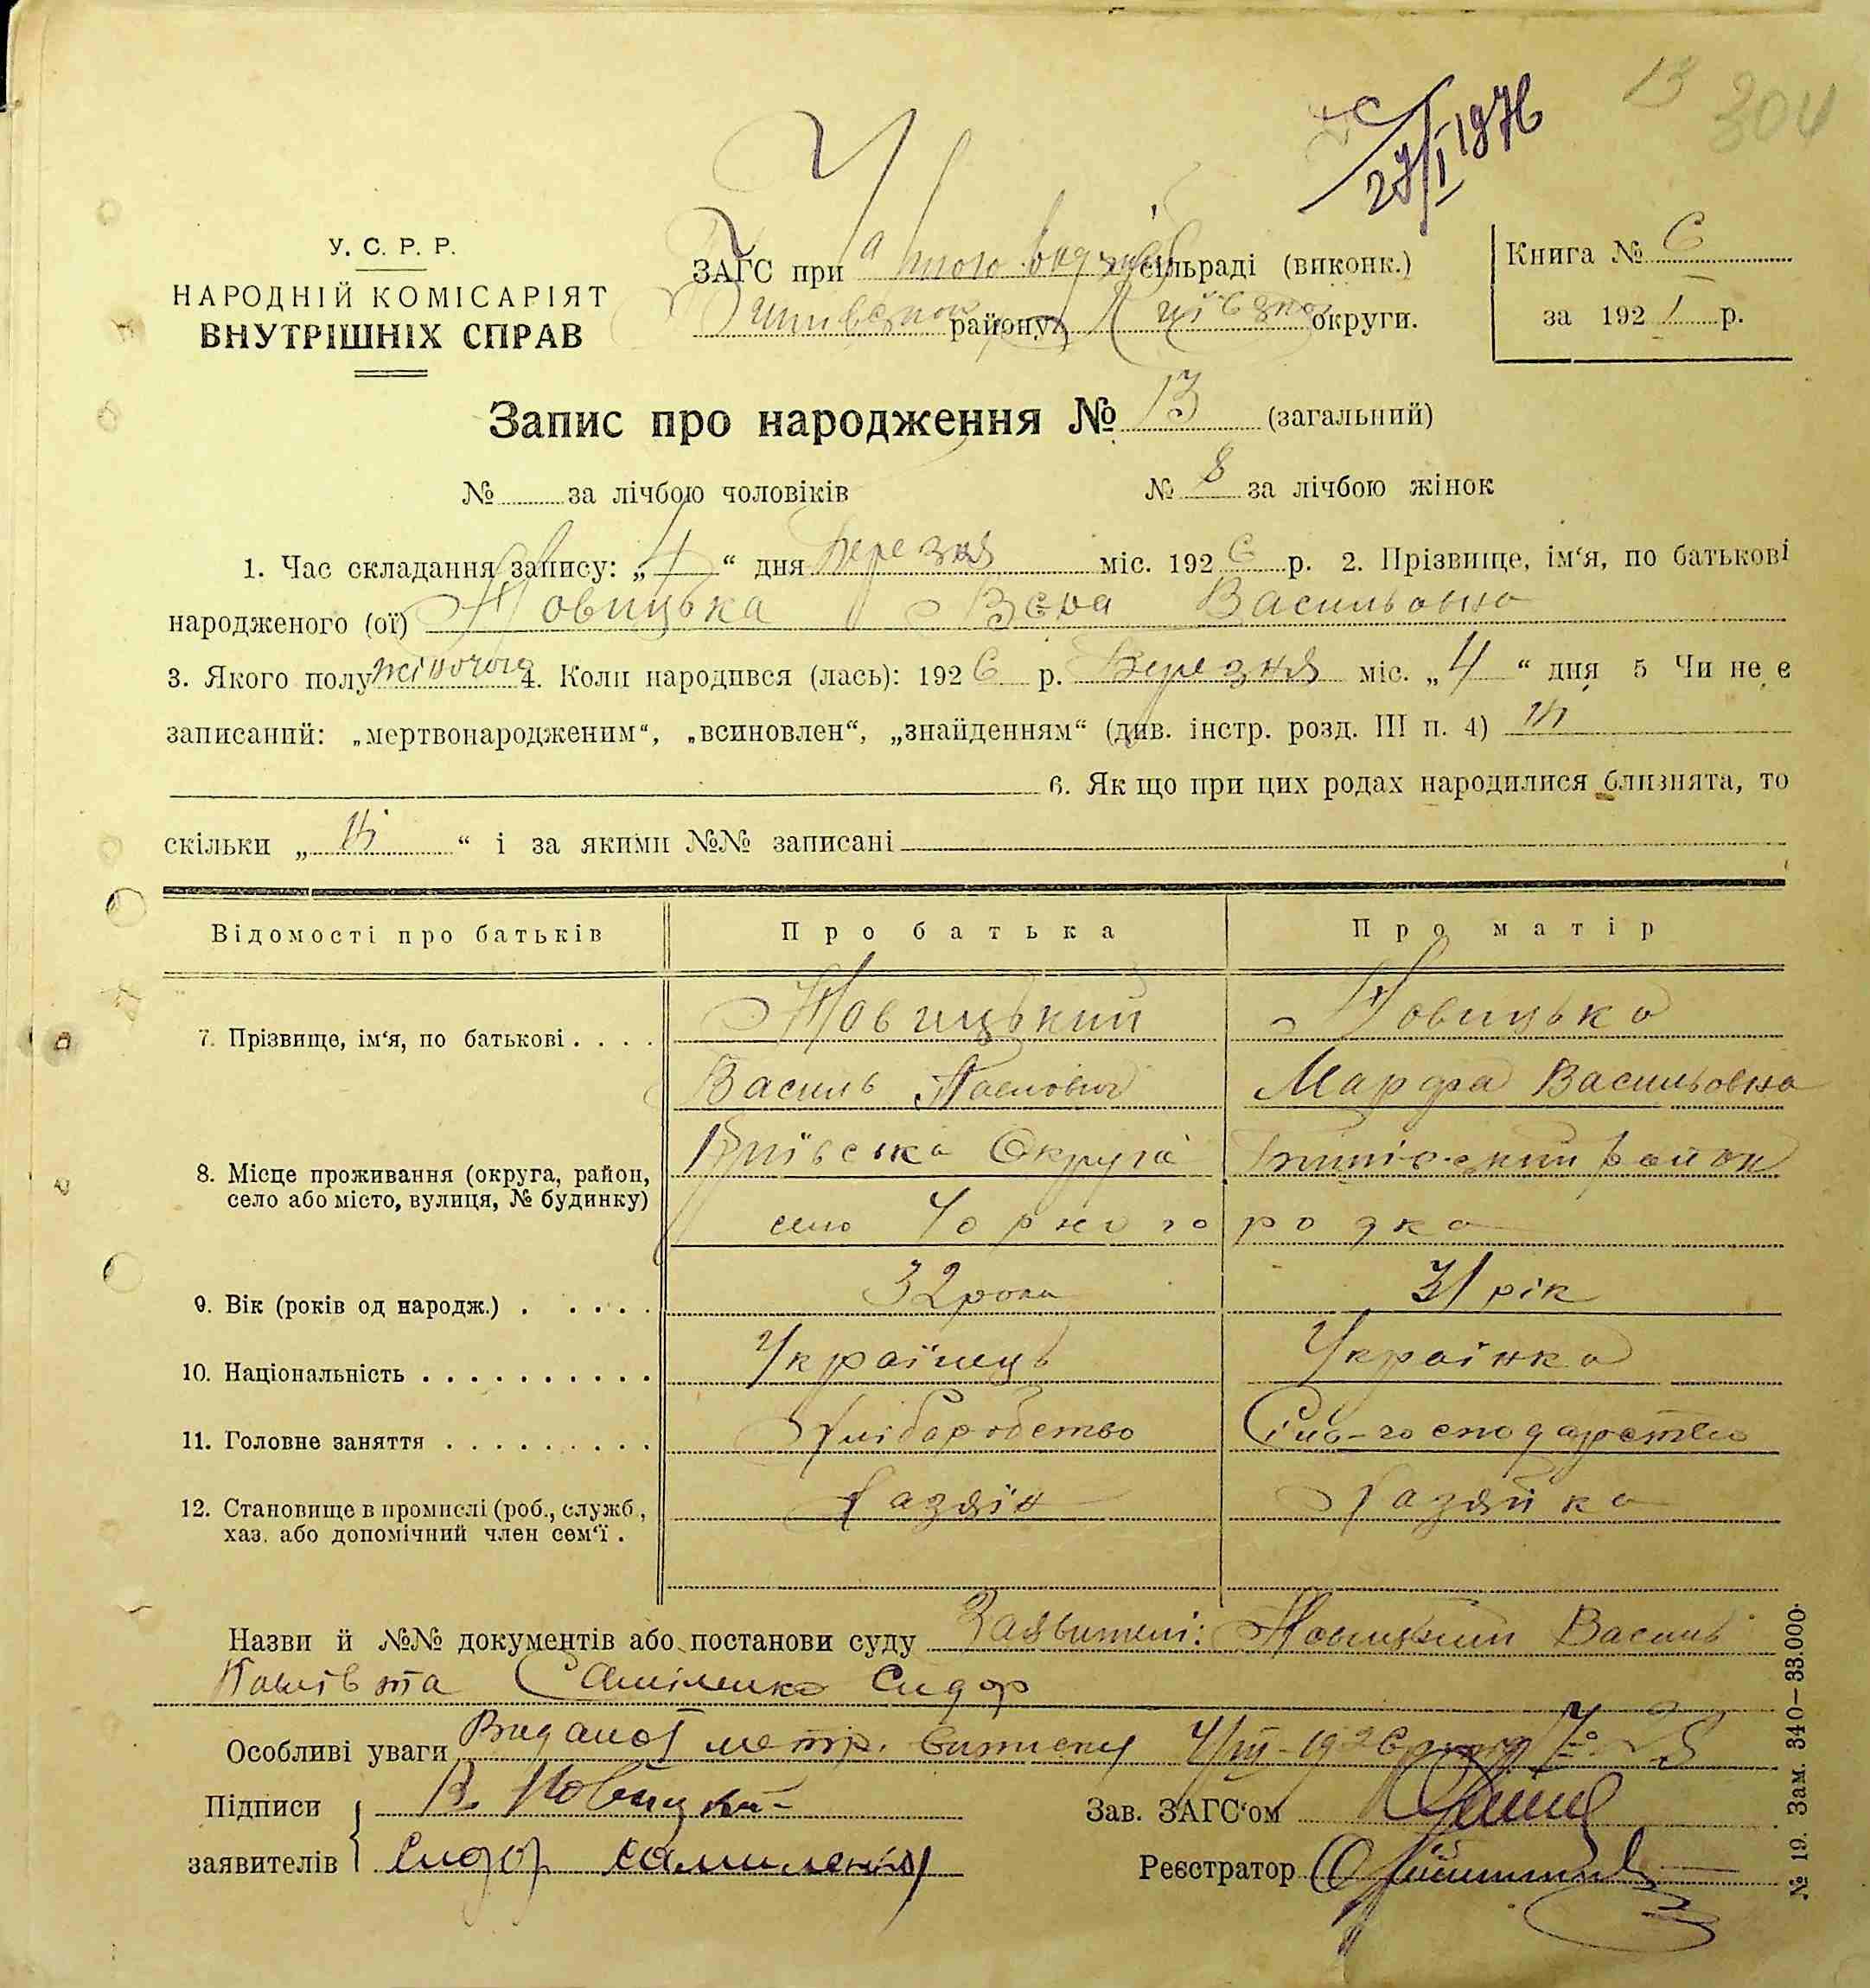 13 304
27/I 1976
У. С. Р. Р.
НАРОДНІЙ КОМІСАРІЯТ
ВНУТРІШНІХ СПРАВ
ЗАГС при сільраді (виконк.)
району Київської округи.
Книга № 6
за 192 р.
Запис про народження № 13 (загальний)
№ за лічбою чоловіків № 8 за лічбою жінок
1. Час складання запису: „4“ дня Березня міс. 1926 р. 2. Прізвище, ім‘я, по батькові
народженого (ої) Новицька Вєра Васильовна
3. Якого полу жіночого 4. Коли народився (лась): 1926 р. Березня міс. „4“ дня 5 Чи не є
записаний: „мертвонародженим“, „всиновлен“, „знайденням“ (див. інстр. розд. III п. 4) ні
6. Як що при цих родах народилися близнята, то
скільки „ні“ і за якими №№ записані
Відомості про батьків Про батька Про матір
7. Прізвище, ім‘я, по батькові . . . . Новицький Новицька
Василь Павлович Марфа Васильовна
8. Місце проживання (округа, район, Київська Округа район
село або місто, вулиця, № будинку) село Чорногородка
9. Вік (років од народж.) . . . . . 32 роки 31 рік
10. Національність . . . . . . . . . . . Українець Українка
11. Головне заняття . . . . . . . . . . Хліборобство Сіль-господарство
12. Становище в промислі (роб., служб., Хазяїн Хазяйка
хаз. або допомічний член сем‘ї .
Назви й №№ документів або постанови суду Заявителі: Новицький Василь
Павлів та Самійленко Сидор
Особливі уваги Видано метр. виписку 4/III-1926 року №
Підписи В. Новицький Зав. ЗАГС‘ом
заявителів Сидор Самиленко Реєстратор
№ 19. Зам. 340–33.000.